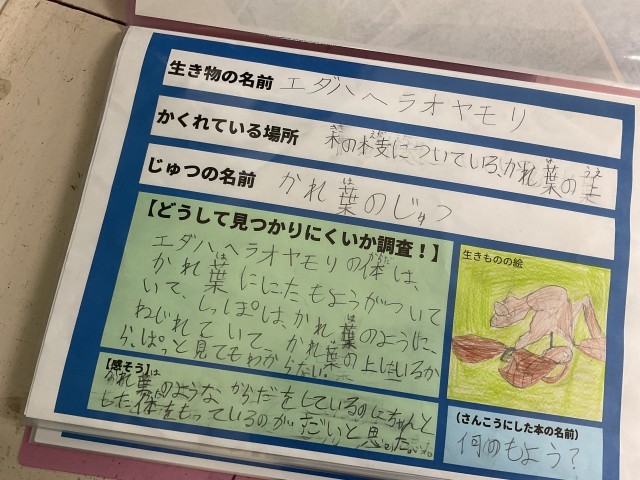 生き物の名前 エダハヘラオヤモリ
かくれている場所 の枝についている、かれ葉の上
じゅつの名前 かれ葉のじゅつ
【どうして見つかりにくいか調査！】
エダハヘラオヤモリの体は、
かれ葉ににたもようがついて
いて、しっぽは、かれ葉のように、
ねじれていて、かれ葉の上にいるか
ら、ぱっと見てもわからない。
【感そう】
かれ葉のようなからだをしているのにちゃんと
した体をもっているのが だいと思った。
生きものの絵
（さんこうにした本の名前）
何のもよう？